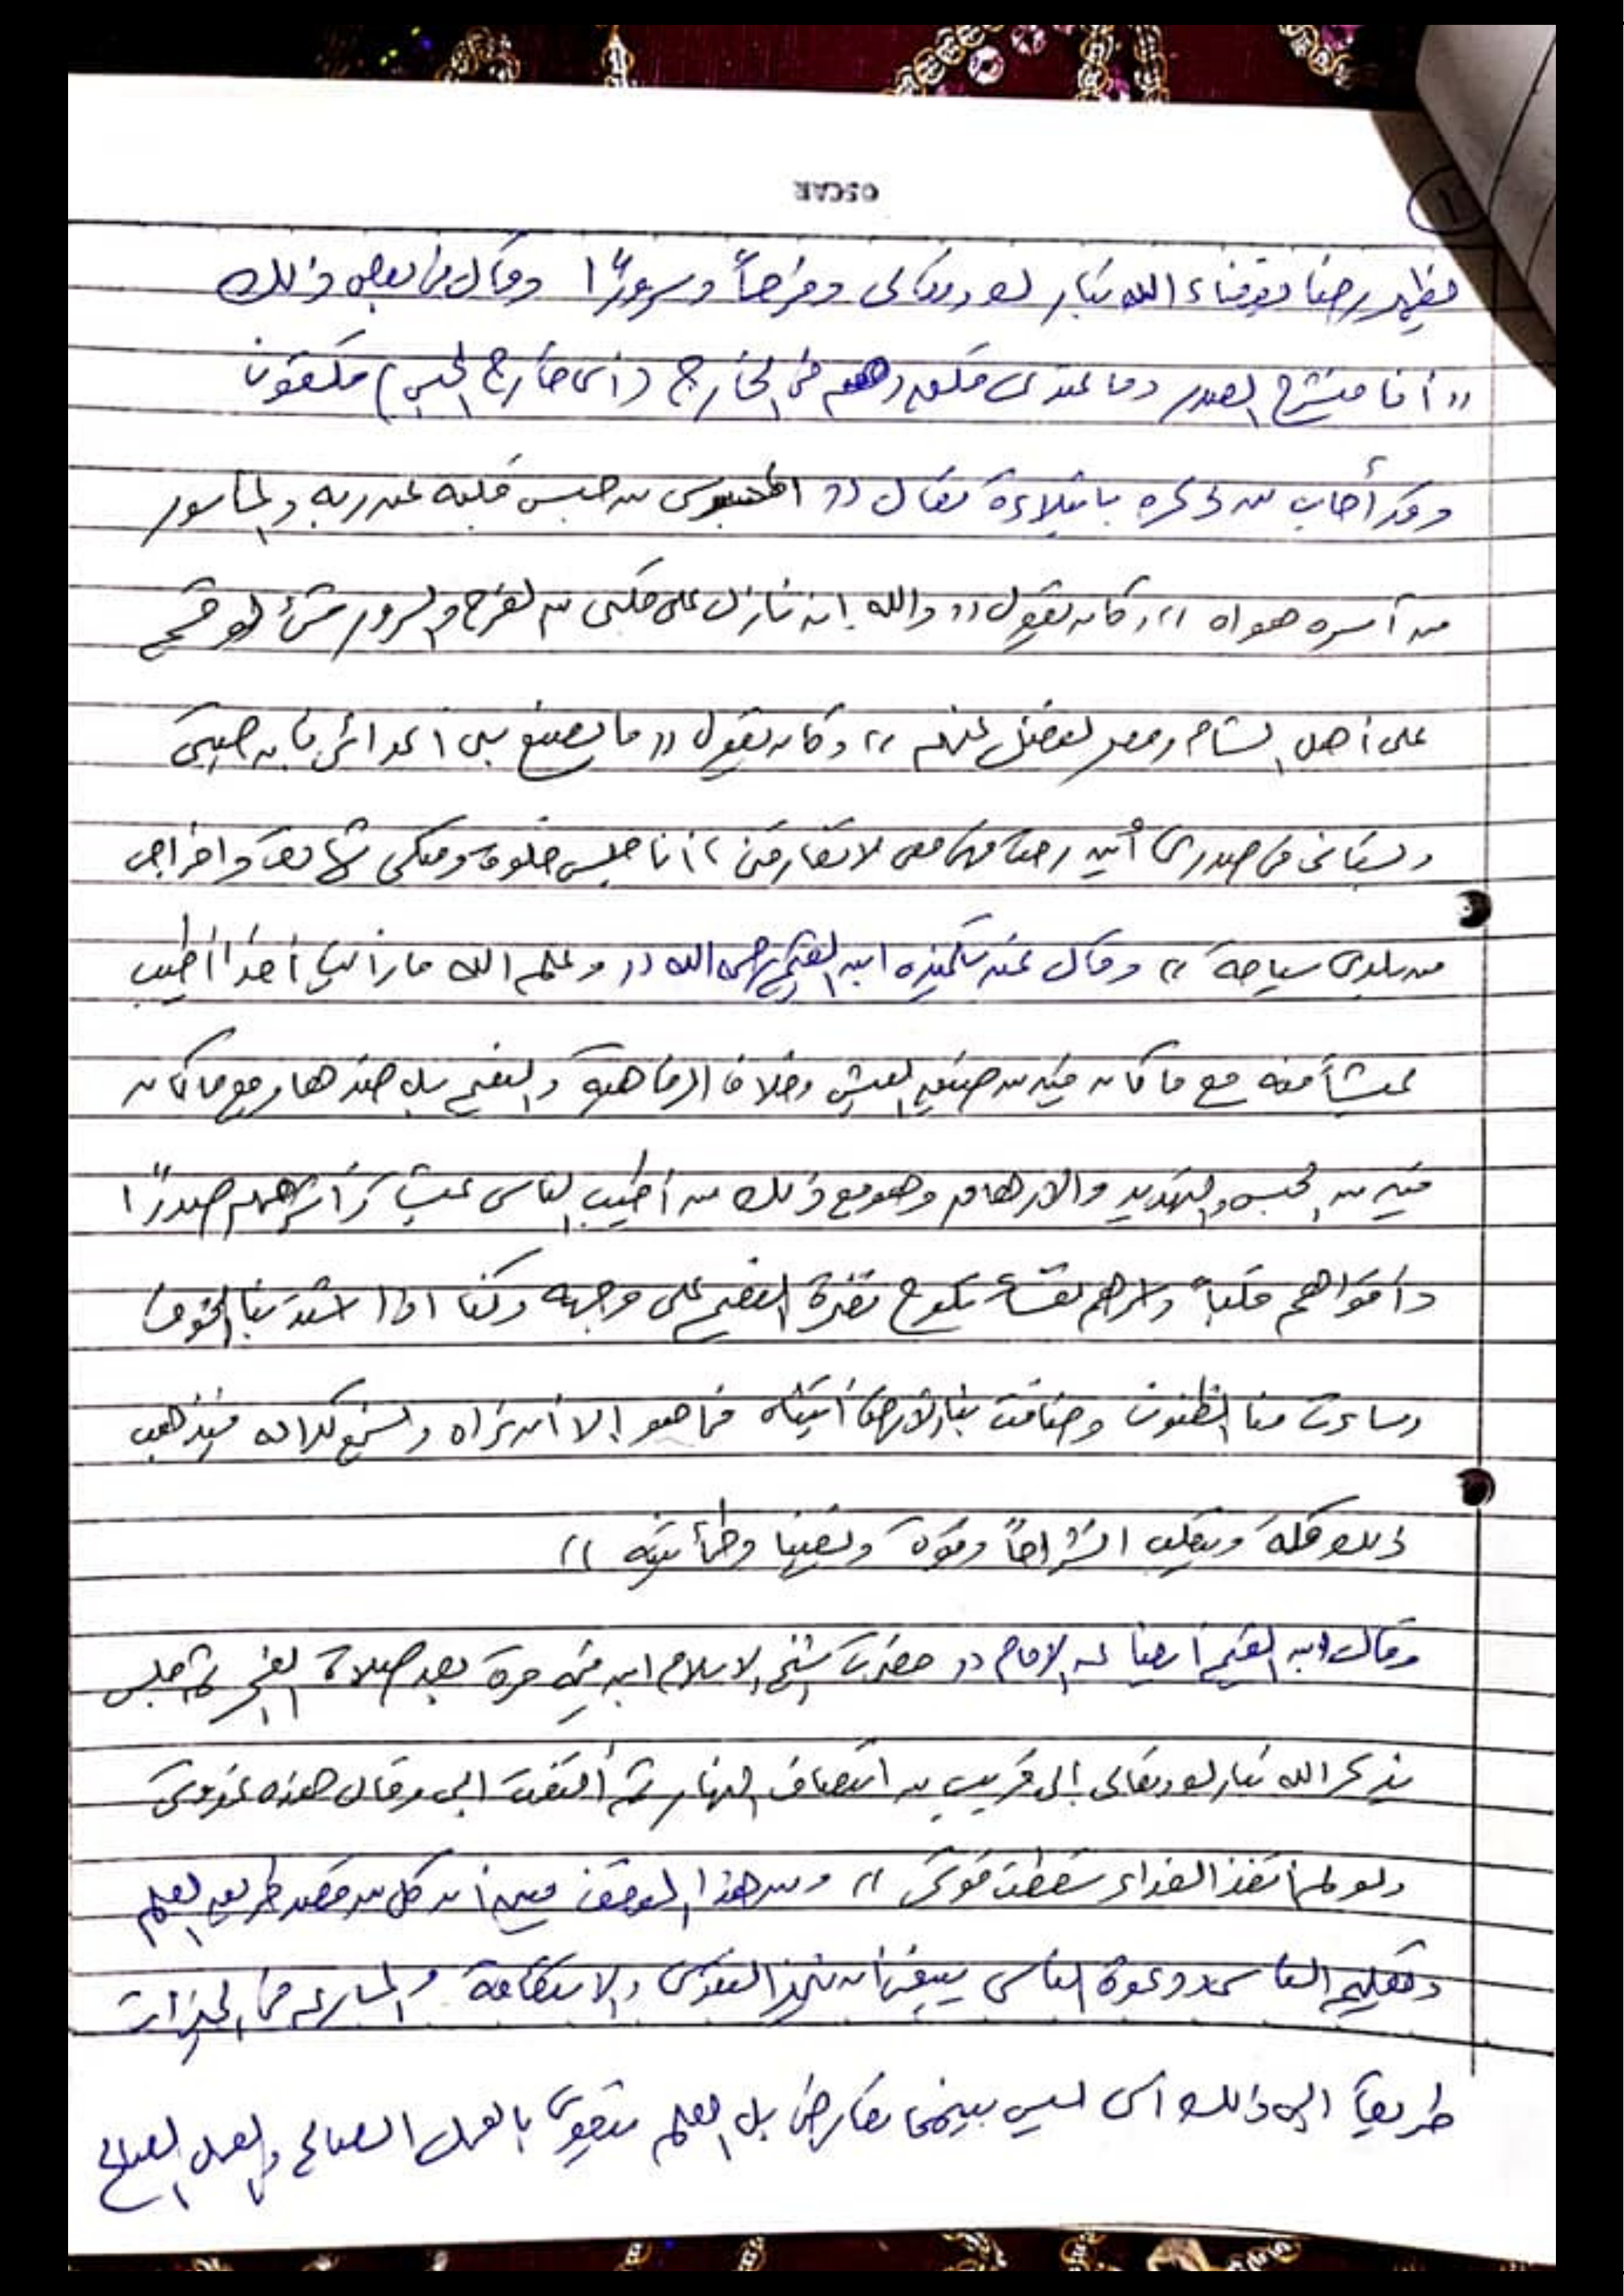 OSCAR
١
فيظهر رضا بقضاء الله تبارك وتعالى وفرحاً وسروراً وقال في بعض ذلك
"أنا منشرح الصدر وما عندي قلق وهم في الخارج (أي خارج الحبس) قلقون
وقد أجاب من ذكره بابتلاءه فقال "المحبوس من حبس قلبه عن ربه والمأسور
من أسره هواه" وكان يقول "والله إنه نازل على قلبي من الفرح والسرور شئ لو قسم
على أهل الشام ومصر لفضل عنهم" وكان يقول "ما يصنع بي أعدائي فإن جنتي
وبستاني في صدري أين رحت فهي معي لا تفارقني، أنا حبسي خلوة وقتلي شهادة واخراجي
من بلدي سياحة" وقال عنه تلميذه ابن القيم رحمه الله "وعلم الله ما رأيت أحداً أطيب
عيشاً منه مع ما كان فيه من ضيق العيش وخلاف الرفاهية والنعيم بل ضدها ومع ما كان
فيه من الحبس والتهديد والارهاق وهو مع ذلك من أطيب الناس عيشا وأشرحهم صدرًا
وأقواهم قلباً وأسرهم نفسا تلوح نضرة النعيم على وجهه وكنا اذا اشتد بنا الخوف
وساءت منا الظنون وضاقت بنا الارض أتيناه فما هو إلا أن نراه ونسمع كلامه فيذهب
ذلك كله وينقلب انشراحاً وقوة ويقينا وطمأنينه"
وقال ابن القيم أيضا عن الإمام "حضرت شيخ الاسلام ابن تيمية مرة بعد صلاة الفجر ثم جلس
يذكر الله تبارك وتعالى إلى قريب من انتصاف النهار ثم التفت الي وقال هذه غدوتي
ولو لم أتغذ الغداء سقطت قوتي" ومن هذا الموقف فيه أن كل من قصد طريق العلم
وتعليم الناس ودعوة الناس ينبغي أن التقوى والاستقامة والمسارعه في الخيرات
طريقاً الى ذلك أي ليس بينهما تعارض بل العلم يتقوى بالعمل الصالح والعمل الصالح